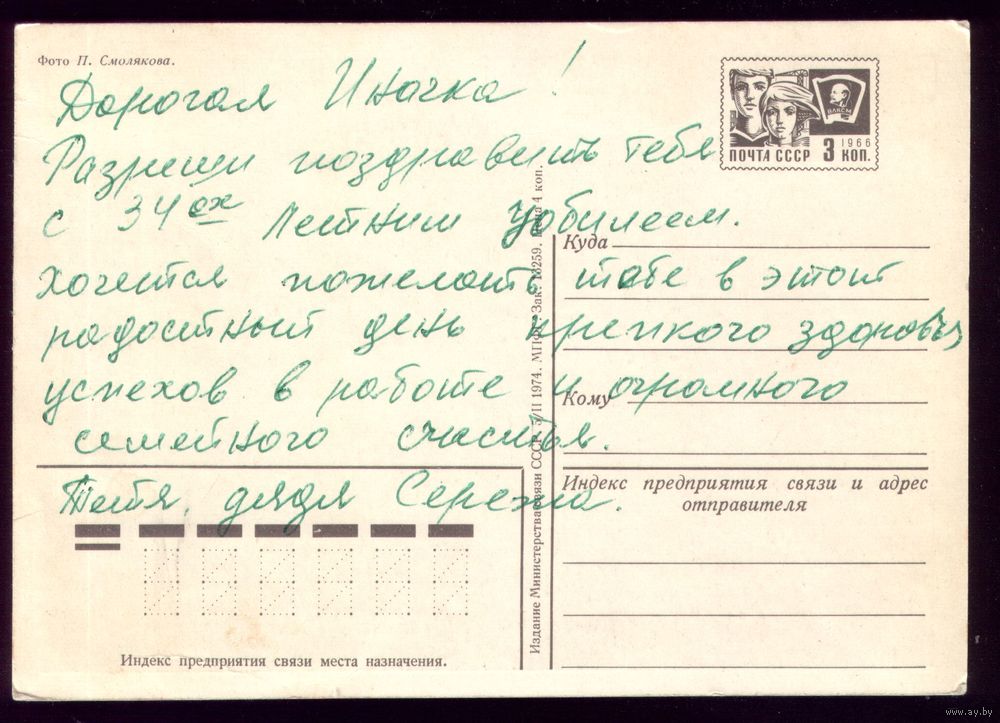 Фото П. Смолякова.
Дорогая Иночка!
Разреши поздравить тебя
с 34ех летним юбилеем.
хочется пожелать тебе в этот
радостный день крепкого здоровья,
успехов в работе и огромного
семейного счастья.
Тетя, дядя Сережа.
ВЛКСМ
1966
ПОЧТА СССР 3 КОП.
Куда
Кому
Индекс предприятия связи и адрес
отправителя
Издание Министерства связи СССР. 5/II 1974. МПФГ. Зак. 13259. Цена 4 коп.
Индекс предприятия связи места назначения.
www.ay.by